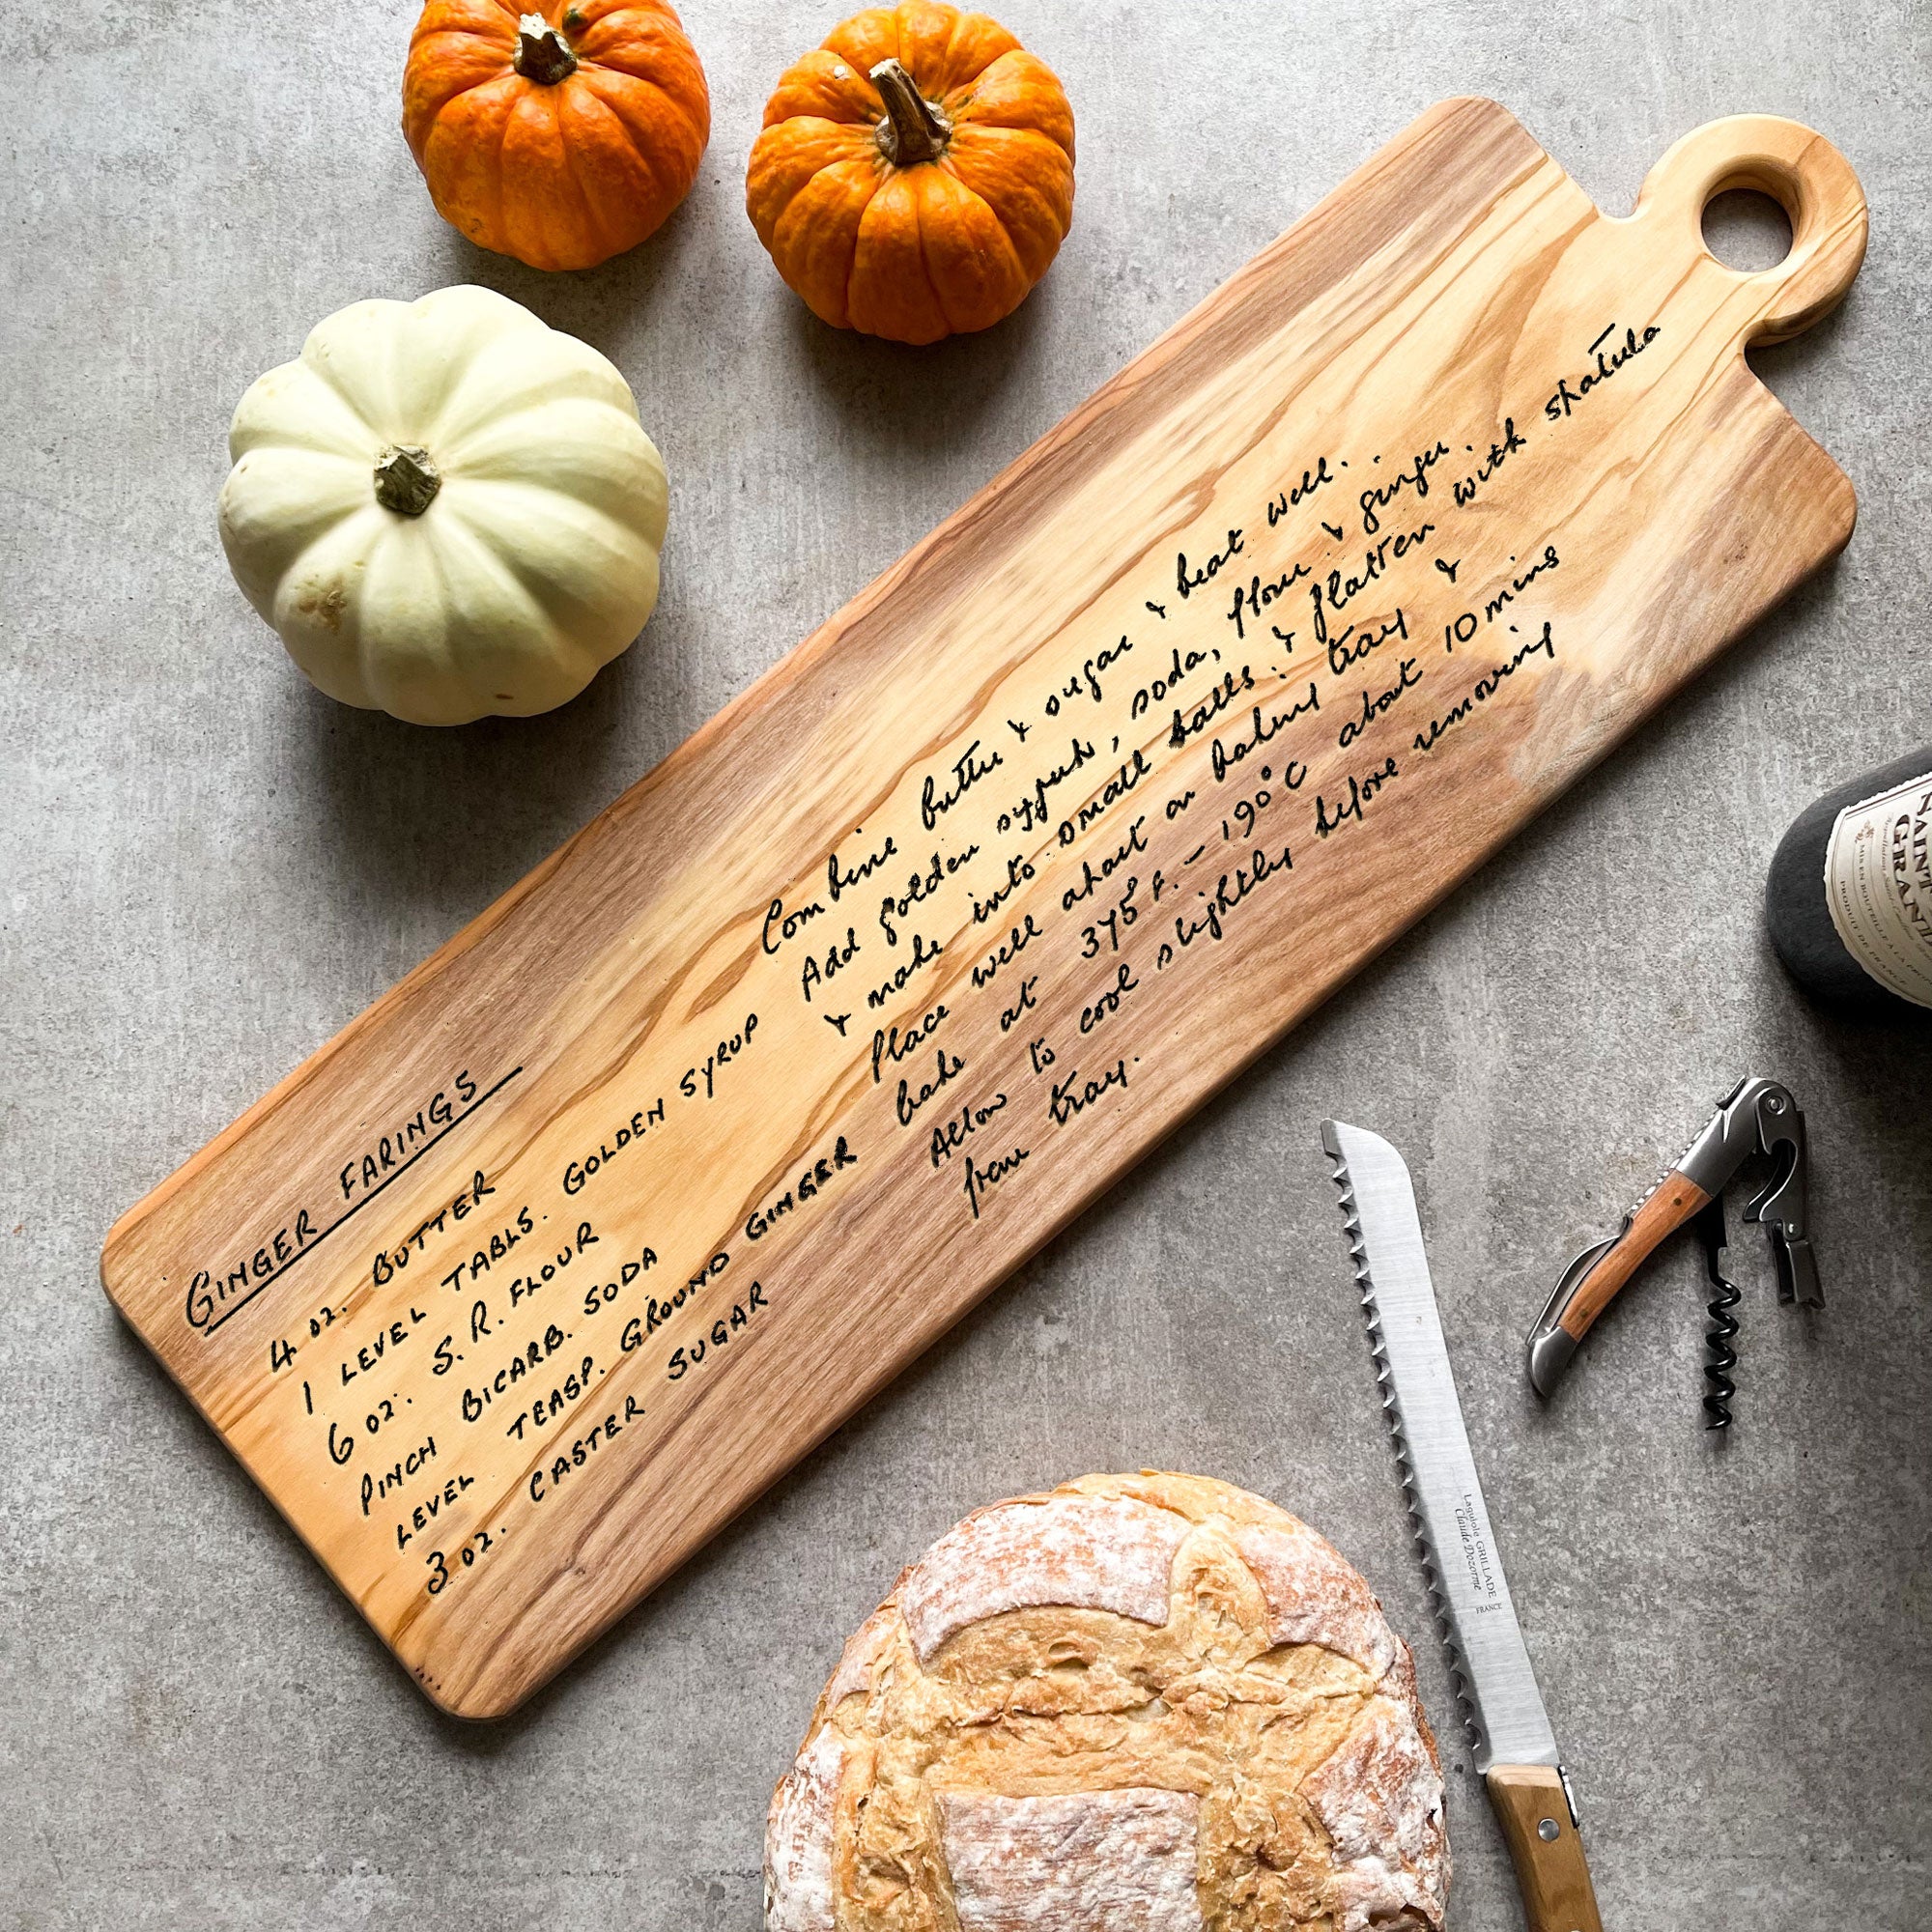 GINGER FARINGS
4 oz. BUTTER
1 LEVEL TABLS. GOLDEN SYRUP
6 oz: S.R. FLOUR
PINCH BICARB. SODA
LEVEL TEASP. GROUND GINGER
3 oz. CASTER SUGAR
Combine butter & sugar & beat well.
Add golden syrup, soda, flour & ginger.
& make into small balls. & flatten with spatula
Place well apart on baking tray &
bake at 375°F. - 190°C about 10 mins
Allow to cool slightly before removing
from tray.
SAINT
GRAN
MIS EN BOUTEILLE A LA
PRODUIT DE FRANCE
Laguiole GRILLADE
Claude Dozorme
FRANCE